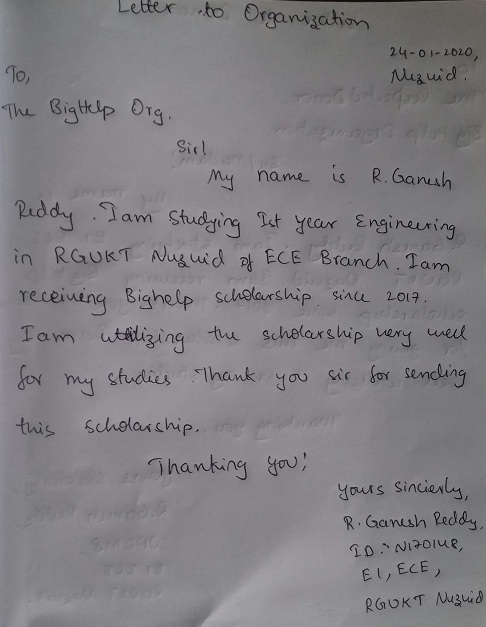 Letter to Organization
24-01-2020,
Nuzuid.
To,
The BigHelp Org.
Sir!
My name is R. Ganesh
Reddy. Iam Studying Ist year Engineering
in RGUKT Nuzuid of ECE Branch. Iam
receiving Bighelp scholarship since 2017.
Iam utilizing the scholarship very well
for my studies. Thank you sir for sending
this scholarship.
Thanking you!
yours sincierly,
R. Ganesh Reddy,
ID:
E1, ECE,
RGUKT Nuzuid